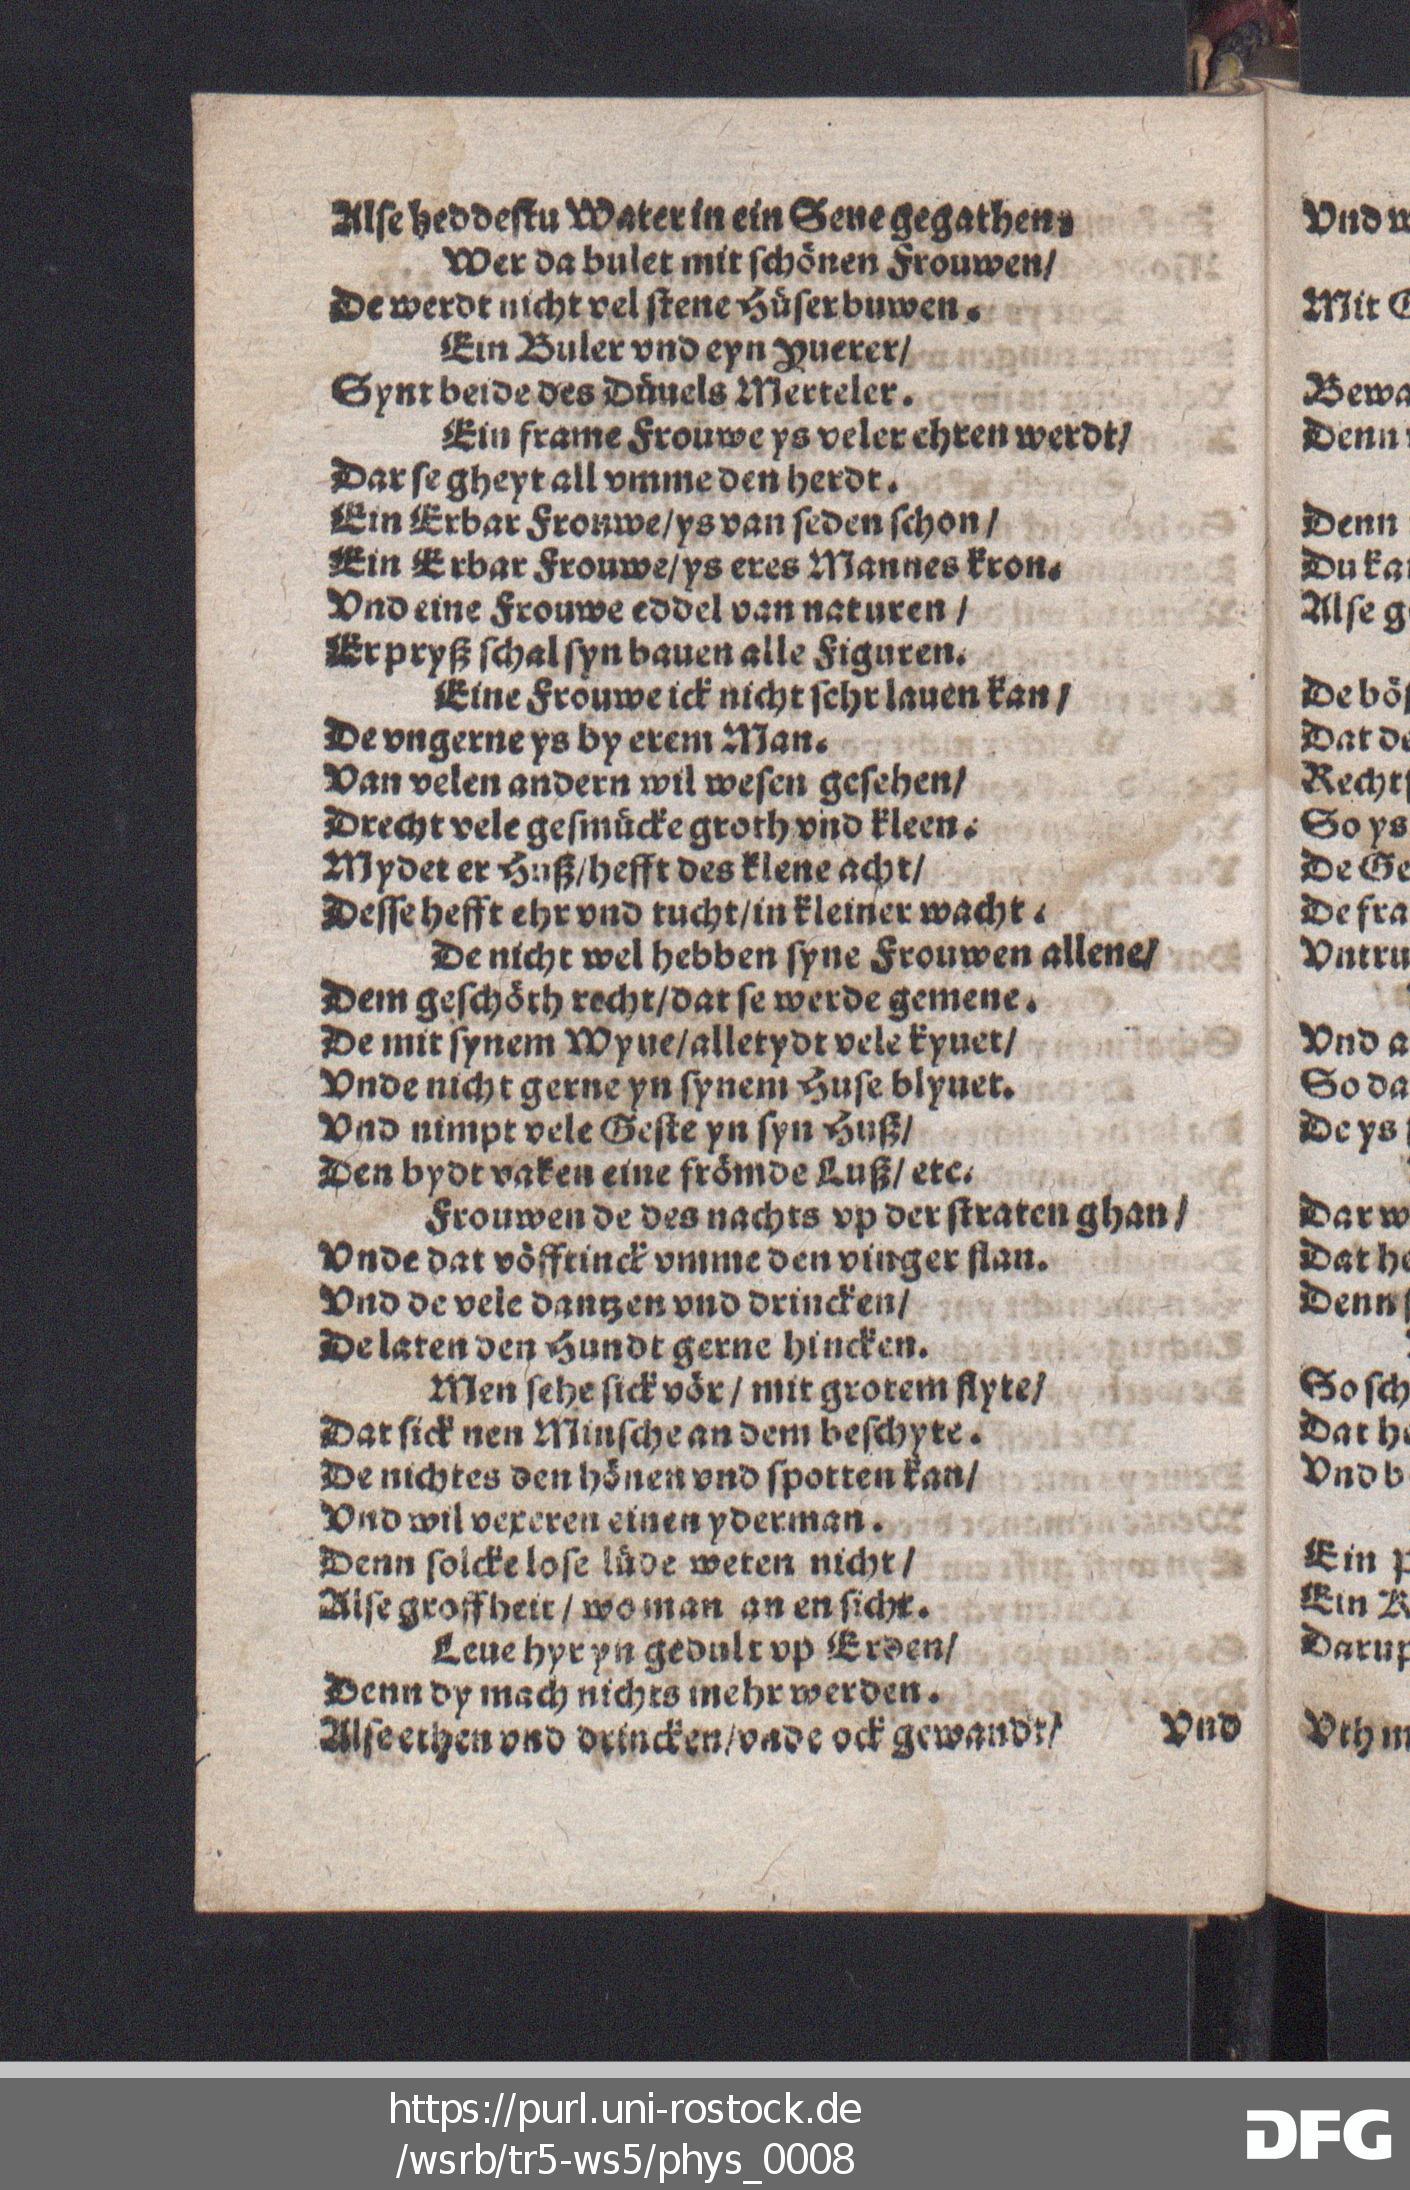 Alse heddestu Water in ein Seue gegathen.
Wer da bulet mit schönen Frouwen/
De werdt nicht vel stene Hüser buwen.
Ein Buler vnd eyn Yuerer/
Synt beide des Düuels Merteler.
Ein frame Frouwe ys veler ehren werdt/
Dar se gheyt all vmme den herdt.
Ein Erbar Frouwe/ys van seden schon/
Ein Erbar Frouwe/ys eres Mannes kron.
Vnd eine Frouwe eddel van naturen /
Er pryß schal syn bauen alle Figuren.
Eine Frouwe ick nicht sehr lauen kan/
De vngerne ys by erem Man.
Van velen andern wil wesen gesehen/
Drecht vele gesmücke groth vnd kleen.
Mydet er Huß/hefft des klene acht/
Desse hefft ehr vnd tucht/in kleiner wacht.
De nicht wel hebben syne Frouwen allene/
Dem geschöth recht/dat se werde gemene.
De mit synem Wyue/alletydt vele kyuet/
Vnde nicht gerne yn synem Huse blyuet.
Vnd nimpt vele Geste yn syn Huß/
Den bydt vaken eine frömde Luß/ etc.
Frouwen de des nachts vp der straten ghan/
Vnde dat vöfftinck vmme den vinger slan.
Vnd de vele dantzen vnd drincken/
De laten den Hundt gerne hincken.
Men sehe sick vör/ mit grotem flyte/
Dat sick nen Minsche an dem beschyte.
De nichtes den hönen vnd spotten kan/
Vnd wil vexeren einen yderman.
Denn solcke lose lüde weten nicht/
Alse groffheit/ wo man an en sicht.
Leue hyr yn gedult vp Erden/
Denn dy mach nichts mehr werden.
Alse ethen vnd drincken/vnde ock gewandt/
Vnd
Vnd w
Mit G
Bewa
Denn
Denn
Du kan
Alse g
De bös
Dat de
Recht
So ys
De Ge
De fra
Vntru
Vnd a
So da
De ys
Dar w
Dat he
Denn
So sch
Dat he
Vnd b
Ein p
Ein K
Darup
Vth m
https://purl.uni-rostock.de
/wsrb/tr5-ws5/phys_0008
DFG